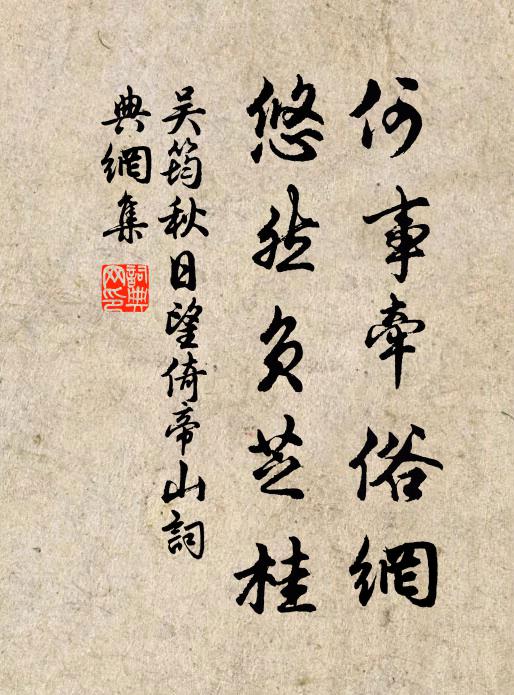 何事牽俗網
悠然負芝桂
吳筠秋日望倚帝山詞
典網集
詞典網印